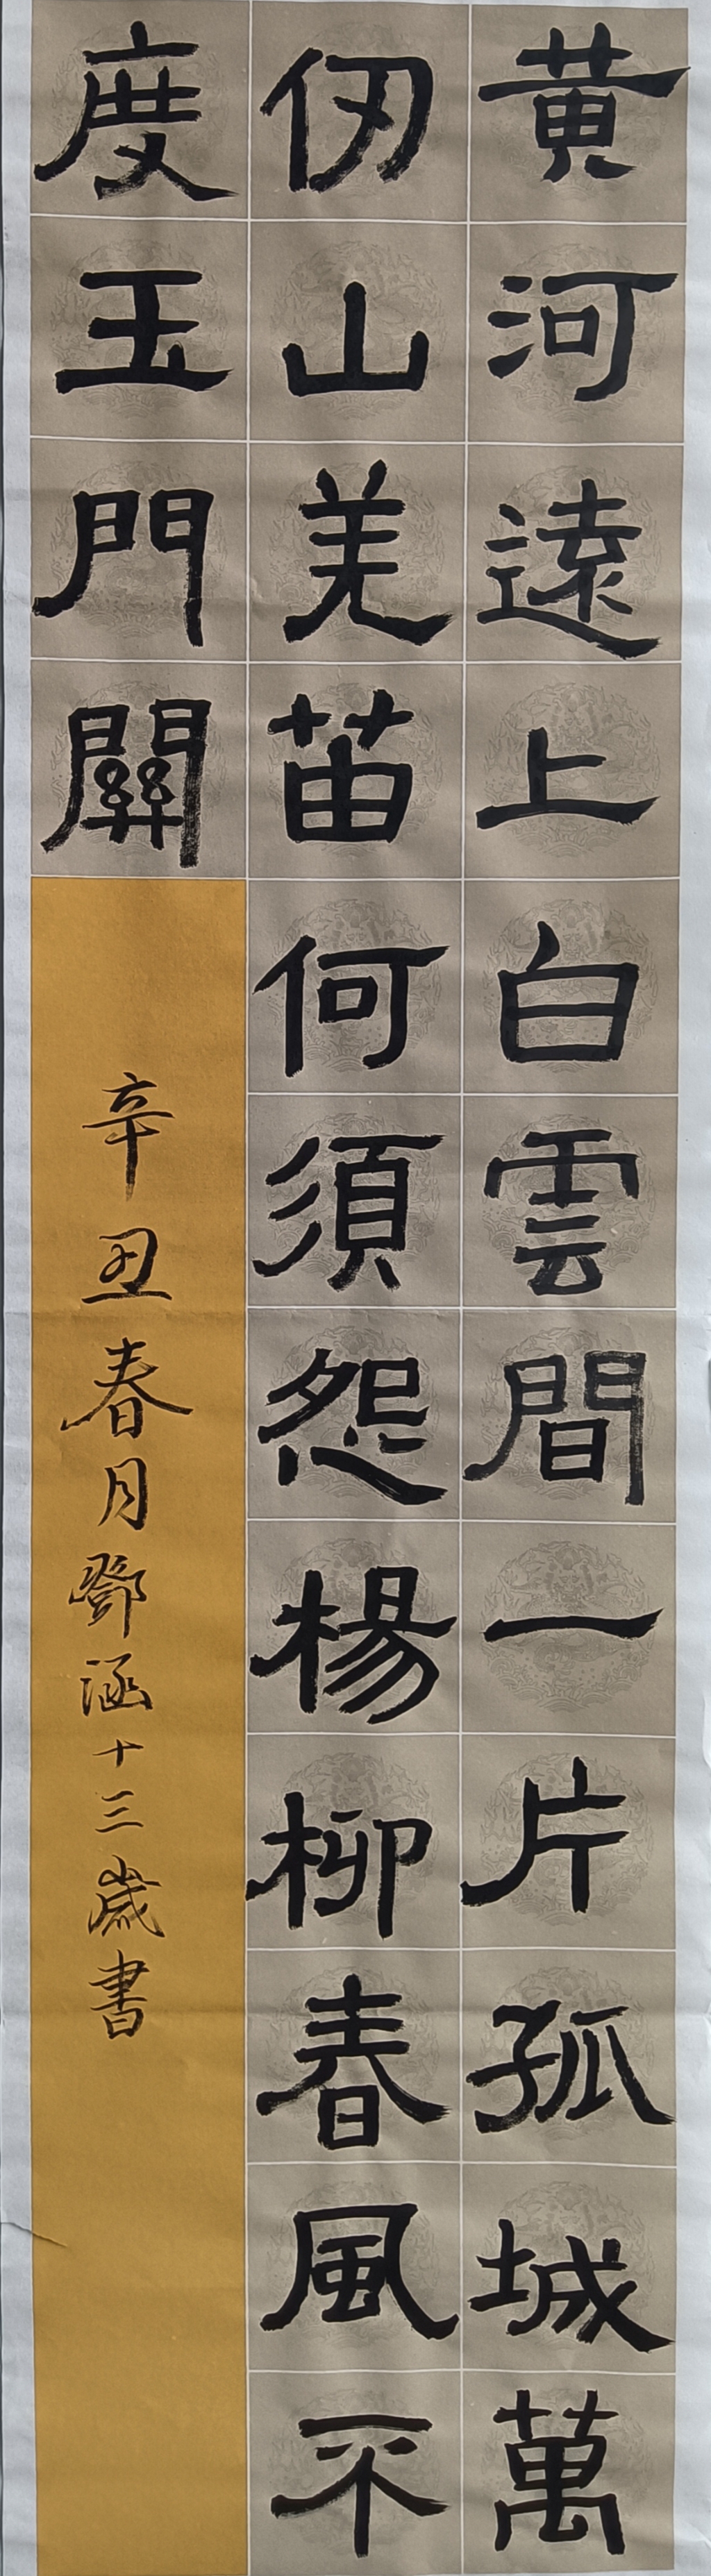 黄河遠上白雲間一片孤城萬
仞山羌苗何須怨楊柳春風不
度玉門關
辛丑春月鄧涵十三歲書